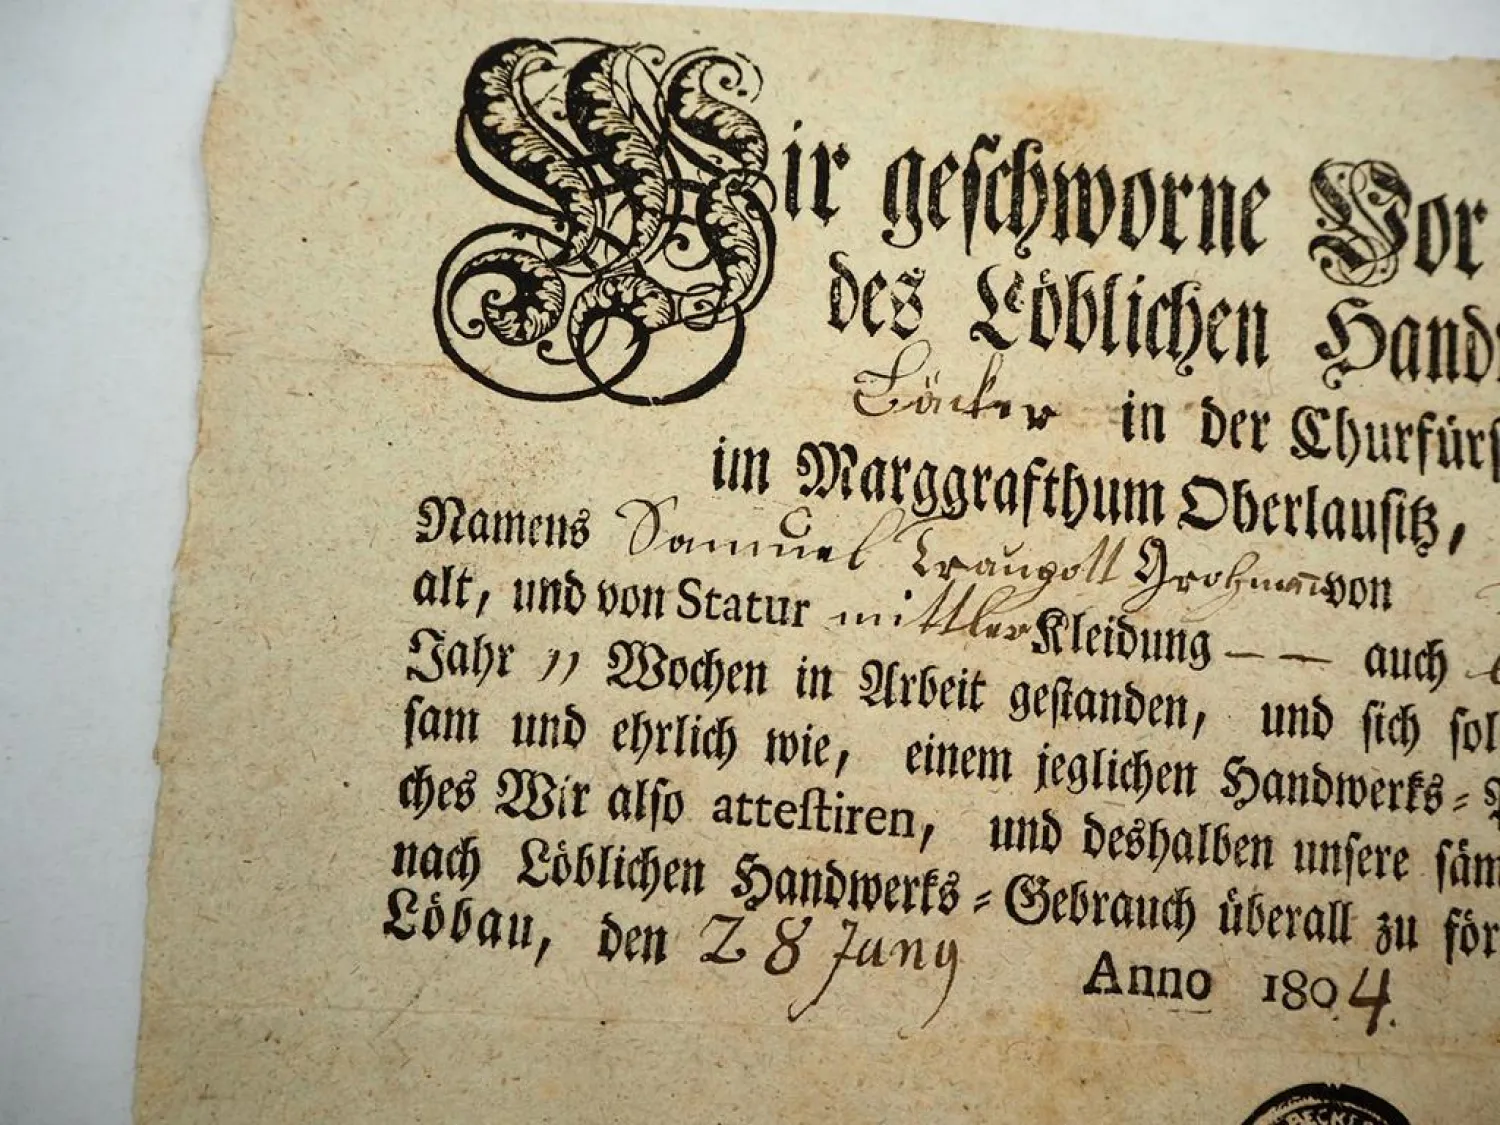 Wir geschworne Vor
des Löblichen Handw
Bäcker in der Churfürs
im Marggrafthum Oberlausitz,
Namens Samuel Traugott Grohman von
alt, und von Statur mittler Kleidung — — auch
Jahr „ Wochen in Arbeit gestanden, und sich sol
sam und ehrlich wie, einem jeglichen Handwerks-
ches Wir also attestiren, und deshalben unsere säm
nach Löblichen Handwerks-Gebrauch überall zu för
Löbau, den 28 Juny Anno 1804.
BECKE